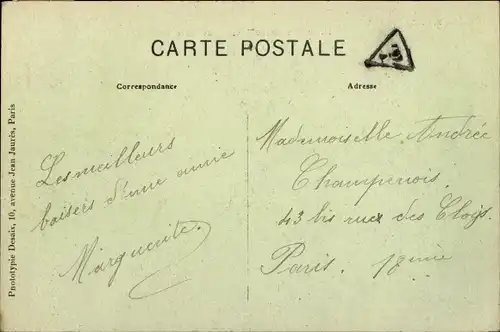 CARTE POSTALE
Correspondance
Adresse
Les meilleurs
baisers d'une amie
Marguerite.
Mademoiselle Andrée
Champenois.
43 bis rue des Cloÿs.
Paris. 18ème
Phototypie Desaix, 10, avenue Jean Jaurès, Paris